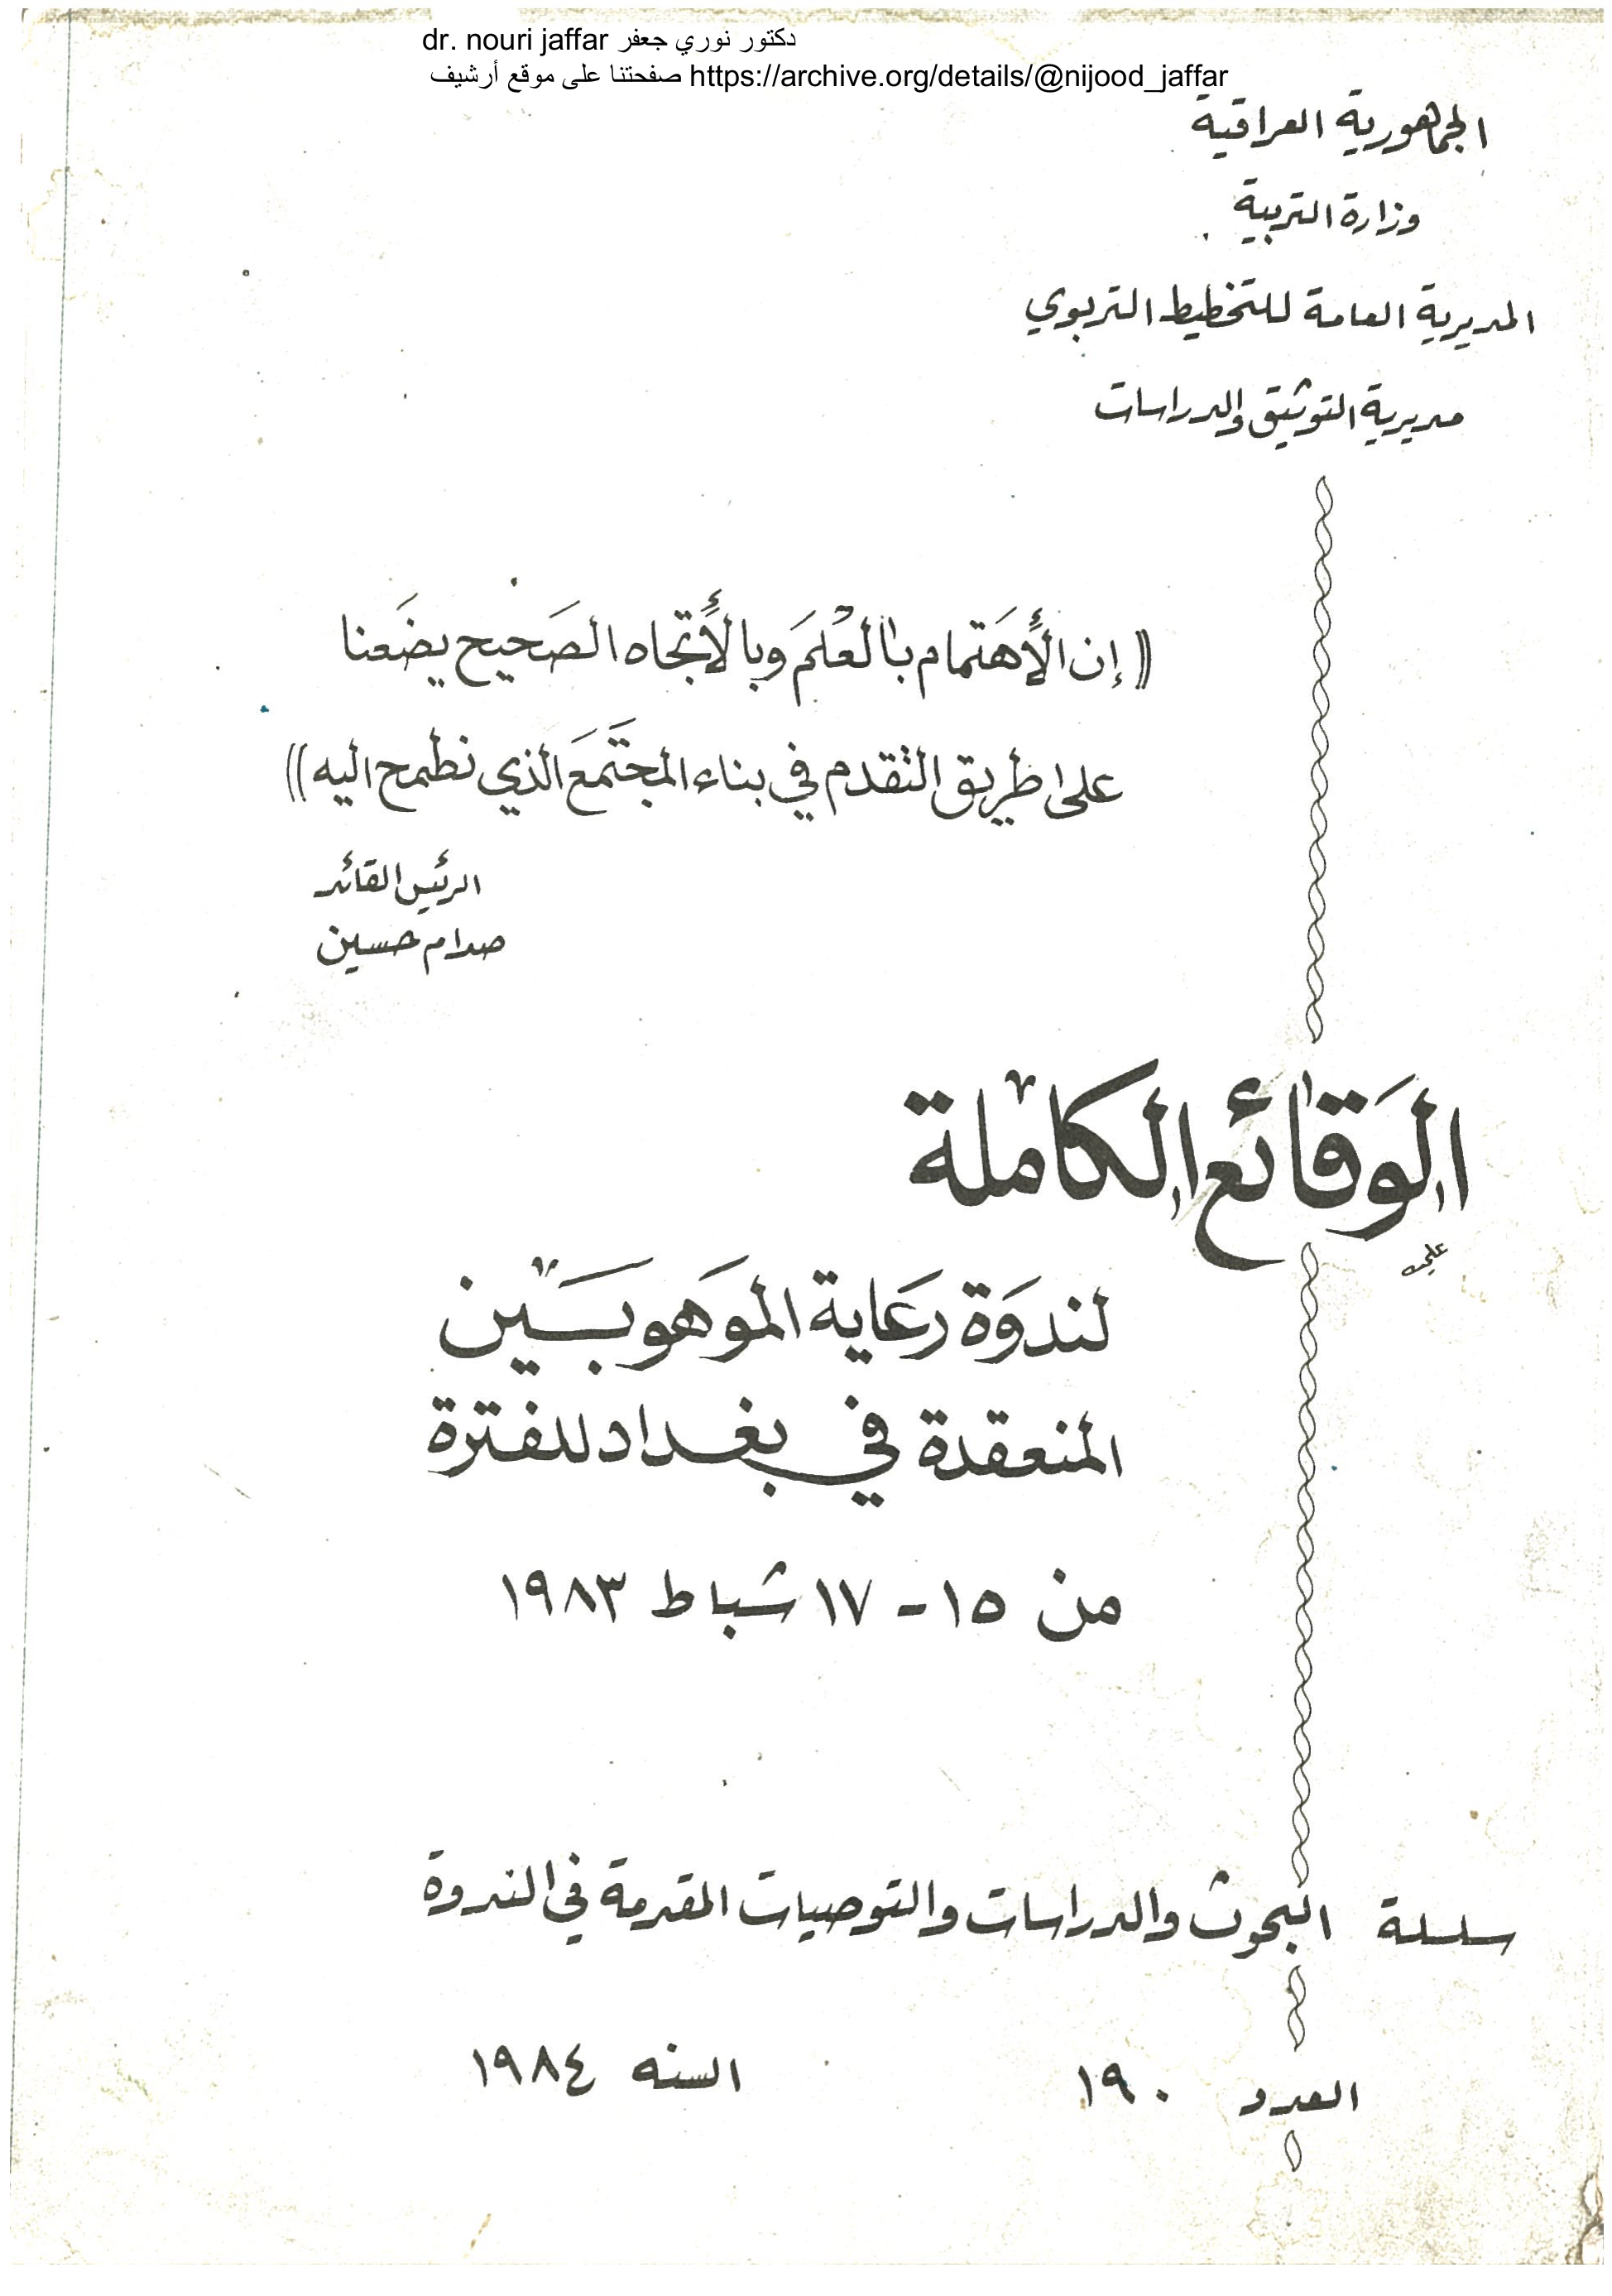 dr. nouri jaffar دكتور نوري جعفر
صفحتنا على موقع أرشيف https://archive.org/details/@nijood_jaffar
الجمهورية العراقية
وزارة التربية
المديرية العامة للتخطيط التربوي
مديرية التوثيق والدراسات
((إن الأهتمام بالعلم وبالأتجاه الصحيح يضعنا
على طريق التقدم في بناء المجتمع الذي نطمح اليه))
الرئيس القائد
صدام حسين
الوقائع الكاملة
لندوة رعاية الموهوبين
المنعقدة في بغداد للفترة
من ١٥ - ١٧ شباط ١٩٨٣
سلسلة البحوث والدراسات والتوصيات المقدمة في الندوة
العدد ١٩٠ السنه ١٩٨٤